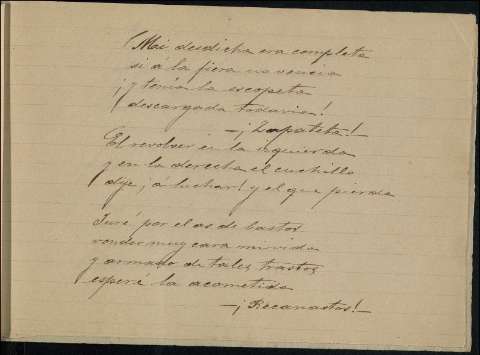 Mi desdicha era completa
si á la fiera no vencia
¡y tenía la escopeta
descargada todavia!
—¡Zapateta!—
El revolver en la izquierda
y en la derecha el cuchillo
dije ¡a luchar! y el que pierda
Juré por el as de bastos
vender muy cara mi vida
y armado de tales trastos
esperé la acometida
—¡Recanastos!—